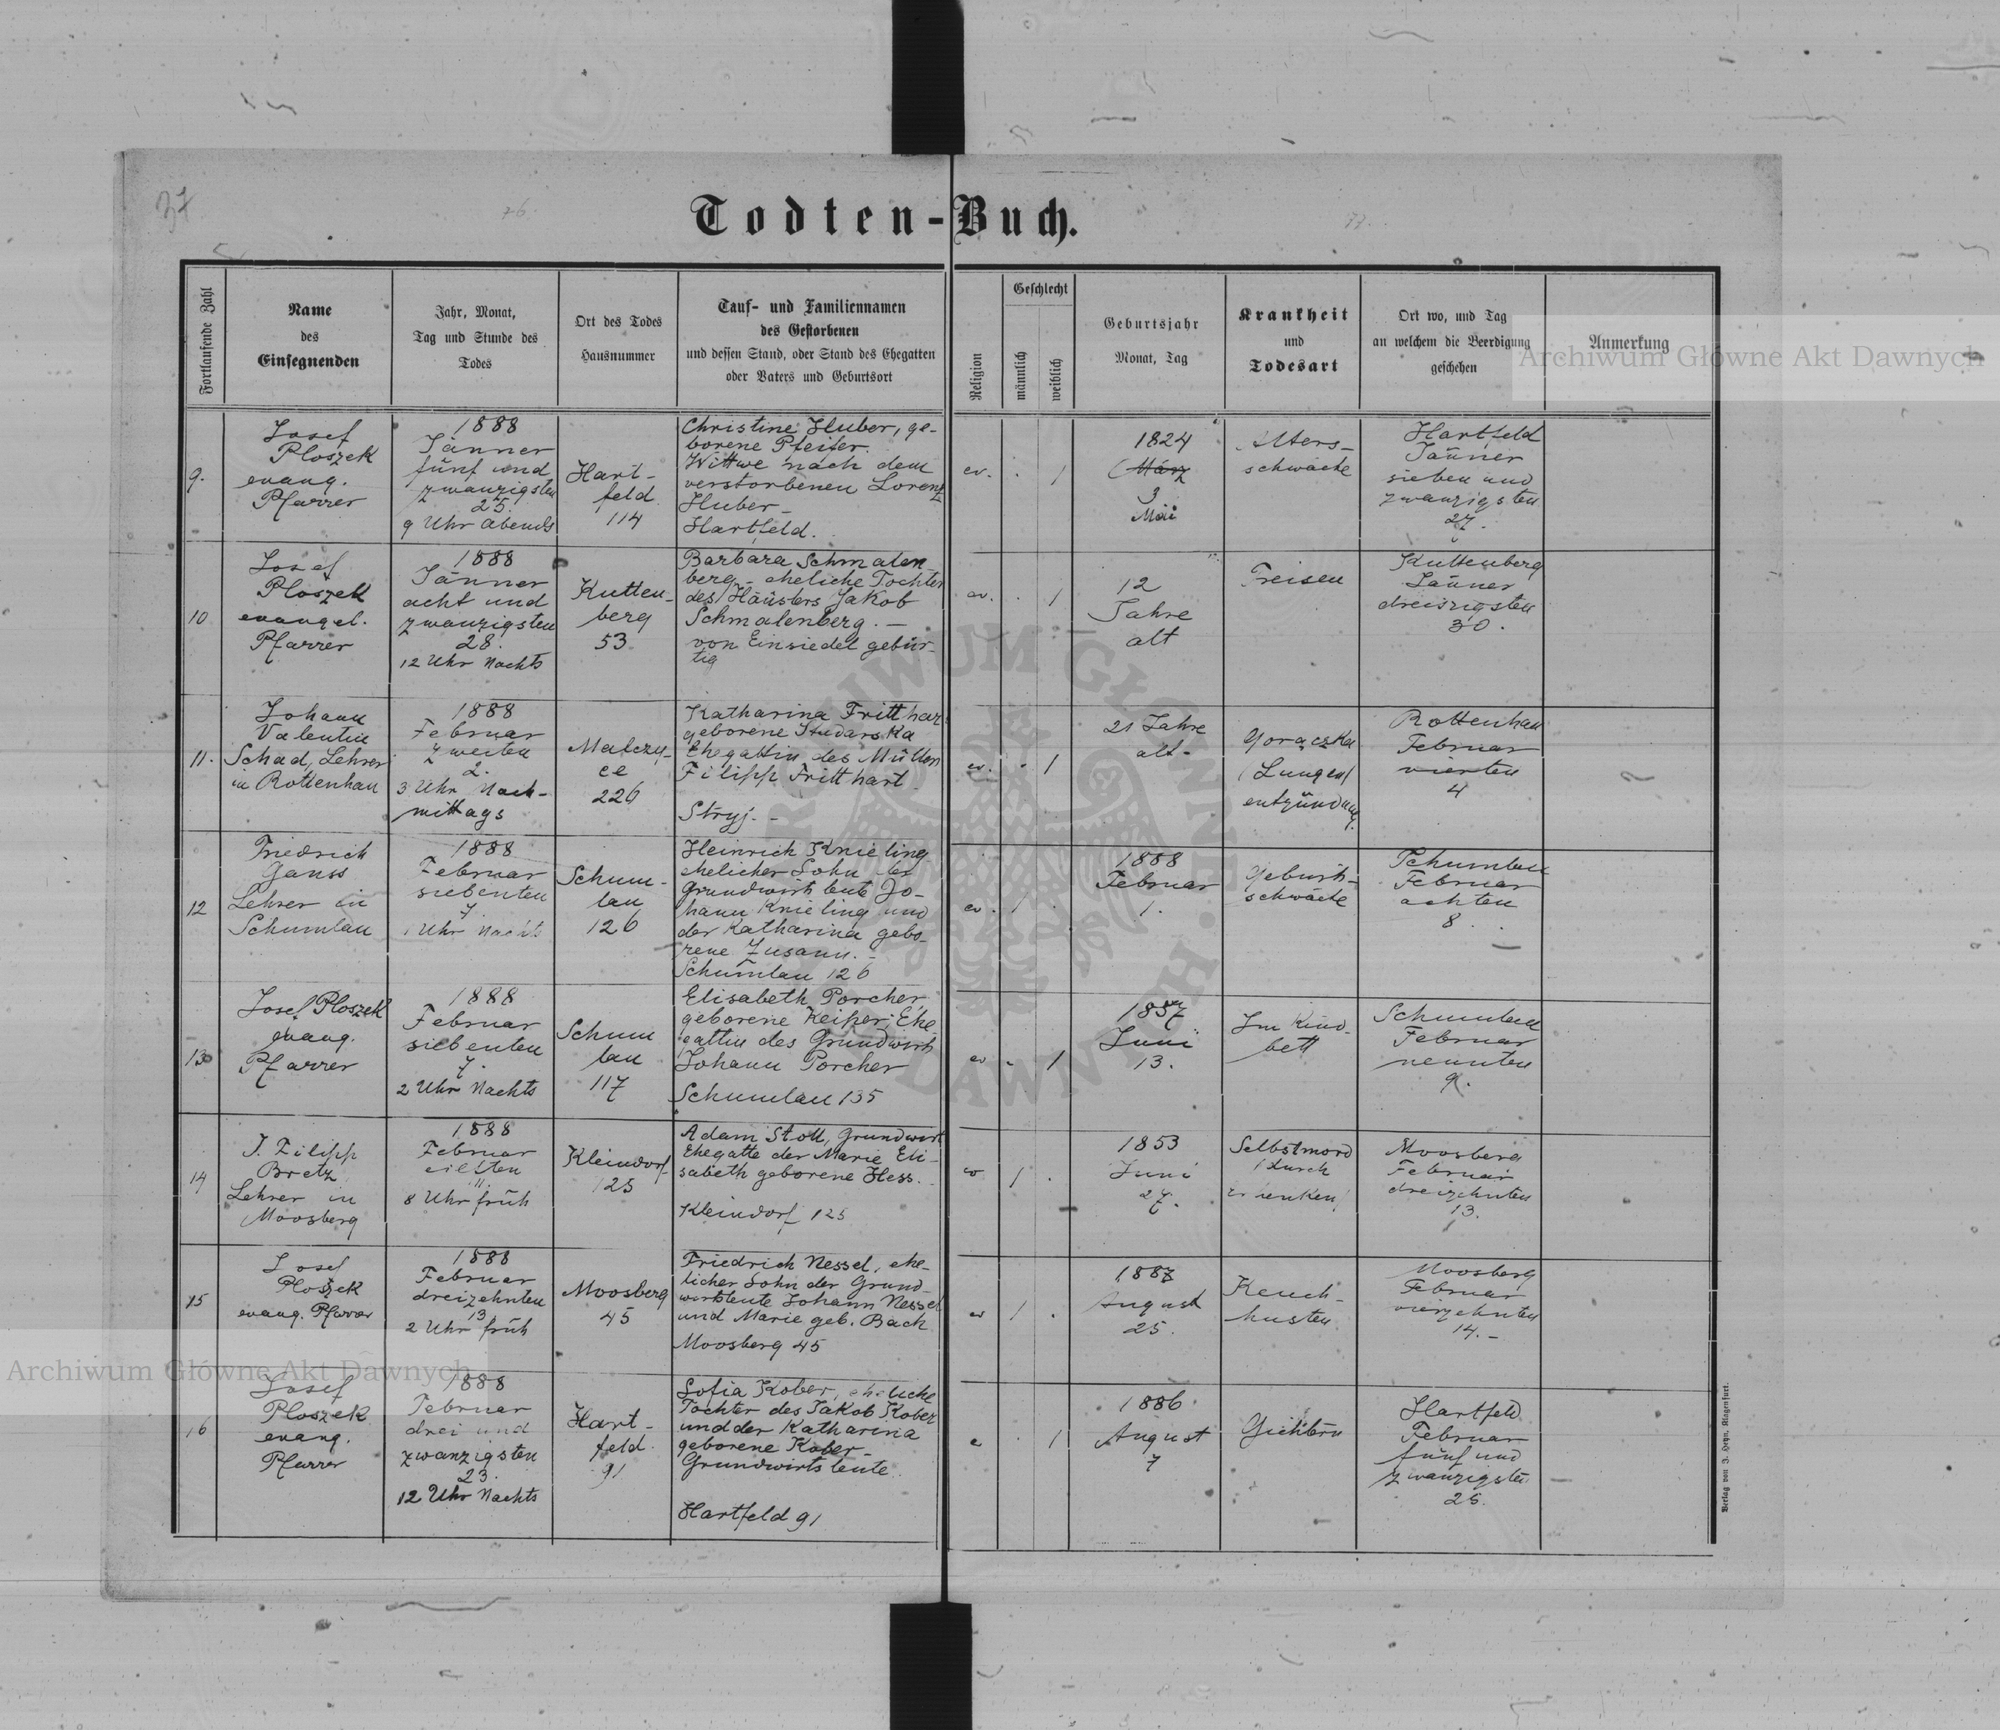 37
76.
77.
Todten-Buch.
Fortlaufende Zahl
Name
des
Einsegnenden
Jahr, Monat,
Tag und Stunde des
Todes
Ort des Todes
Hausnummer
Tauf- und Familiennamen
des Gestorbenen
und dessen Stand, oder Stand des Ehegatten
oder Vaters und Geburtsort
Religion
Geschlecht
männlich
weiblich
Geburtsjahr
Monat, Tag
Krankheit
und
Todesart
Ort wo, und Tag
an welchem die Beerdigung
geschehen
Anmerkung
Archiwum Główne Akt Dawnych
9.
Josef
Ploszek
evang.
Pfarrer
1888
Jänner
fünf und
zwanzigsten
25.
9 Uhr Abends
Hart-
feld
114
Christine Huber, ge-
borene Pfeifer.
Wittwe nach dem
verstorbenen Lorenz
Huber-
Hartfeld.
ev. . 1
1824
März
3
Mai
Alters-
schwäche
Hartfeld
Jänner
sieben und
zwanzigsten
27.
10
Josef
Ploszek
evangel.
Pfarrer
1888
Jänner
acht und
zwanzigsten
28.
12 Uhr Nachts
Kutten-
berg
53
Barbara Schmalen-
berg - eheliche Tochter
des Häuslers Jakob
Schmalenberg. -
von Einsiedel gebür-
tig
ev. . 1
12
Jahre
alt
Freisen
Kuttenberg
Jänner
dreiszigsten
30.
11.
Johann
Valentin
Schad, Lehrer
in Rottenhan
1888
Februar
zweiten
2.
3 Uhr Nach-
mittags
Malczy-
ce
226
Katharina Fritthar
geborene Studarska
Ehegattin des Müllers
Filipp Fritthart
Stryj. -
ev. . 1
21 Jahre
alt-
Gorączka
(Lungen/
entzündung.
Rottenhan
Februar
vierten
4
12
Friedrich
Ganss
Lehrer in
Schumlau
1888
Februar
siebenten
7.
1 Uhr Nachts
Schum-
lau
126
Heinrich Knieling
ehelicher Sohn der
Grundwirthleute Jo-
hann Knieling und
der Katharina gebo-
rene Zusann. -
Schumlau 126
ev. 1 .
1888
Februar
1.
Geburts-
schwäche
Schumlau
Februar
achten
8.
13
Josef Ploszek
evang.
Pfarrer
1888
Februar
siebenten
7.
2 Uhr Nachts
Schum
lau
117
Elisabeth Porcher,
geborene Keiper; Ehe-
gattin des Grundwirth
Johann Porcher
Schumlau 135
ev - 1
1857
Juni
13.
Im Kind-
bett
Schumlau
Februar
neunten
9.
14
J. Filipp
Bretz
Lehrer in
Moosberg
1888
Februar
eilften
11
8 Uhr früh
Kleindorf
125
Adam Stoll, Grundwirt
Ehegatte der Marie Eli-
sabeth geborene Hess.
Kleindorf 125
ev 1 .
1853
Juni
27.
Selbstmord
(durch
Moosberg
Februar
dreizehnten
13.
15
Josef
Ploszek
evang. Pfarrer
1888
Februar
dreizehnten
13
2 Uhr früh
Moosberg
45
Friedrich Nessel, ehe-
licher Sohn der Grund-
wirtsleute Johann Nessel
und Marie geb. Bach
Moosberg 45
ev 1 .
1887
August
25.
Keuch-
husten
Moosberg
Februar
vierzehnten
14. -
Archiwum Główne Akt Dawnych
16
Josef
Ploszek
evang.
Pfarrer
1888
Februar
drei und
zwanzigsten
23.
12 Uhr Nachts
Hart-
feld
91
Sofia Kober, eheliche
Tochter des Jakob Kober
und der Katharina
geborene Kober-
Grundwirtsleute.
Hartfeld 91
e . 1
1886
August
7
Gichtern
Hartfeld
Februar
fünf und
zwanzigsten
25.
Verlag von J. Heyn, Klagenfurt.
ARCHIWUM GŁÓWNE AKT DAWNYCH